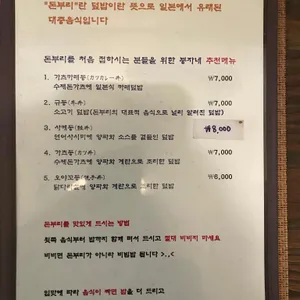 "돈부리"란 덮밥이란 뜻으로 일본에서 유래된
대중음식입니다
돈부리를 처음 접하시는 분들을 위한 추천메뉴
1. 가츠카레동(カツカレー丼) ₩7,000
수제돈가츠에 일본식 카레덮밥
2. 규동(牛丼) ₩7,000
소고기 덮밥(돈부리의 대표적 음식으로 널리 알려진 덮밥)
3. 사케동(鮭丼) ₩8,000
연어사시미에 양파와 소스를 곁들인 덮밥
4. 가츠동(カツ丼) ₩7,000
수제돈가츠에 양파와 계란으로 조리한 덮밥
5. 오야꼬동(親子丼) ₩6,000
닭다리살에 양파와 계란으로 조리한 덮밥
돈부리를 맛있게 드시는 방법
윗쪽 음식부터 밥까지 함께 떠서 드시고 절대 비비지 마세요
비비면 돈부리가 아니라 비빔밥 됩니다 >.,<
입맛에 따라 음식이 짜면 밥을 더 드리고